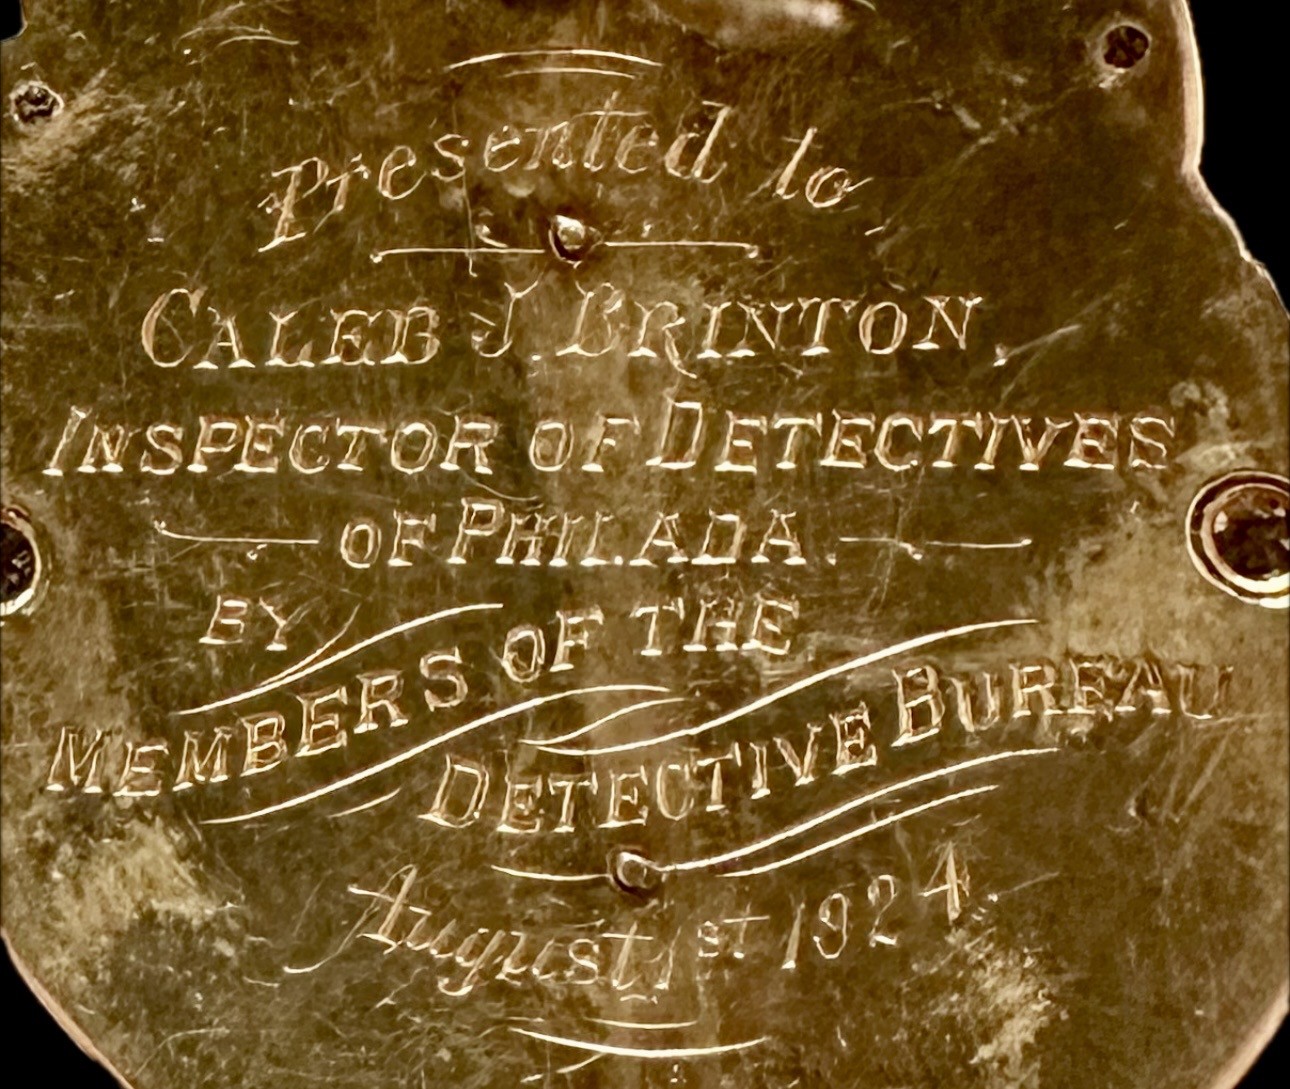 presented to
CALEB J. BRINTON,
INSPECTOR OF DETECTIVES
OF PHILADA.
BY
MEMBERS OF THE
DETECTIVE BUREAU
August 1st 1924.